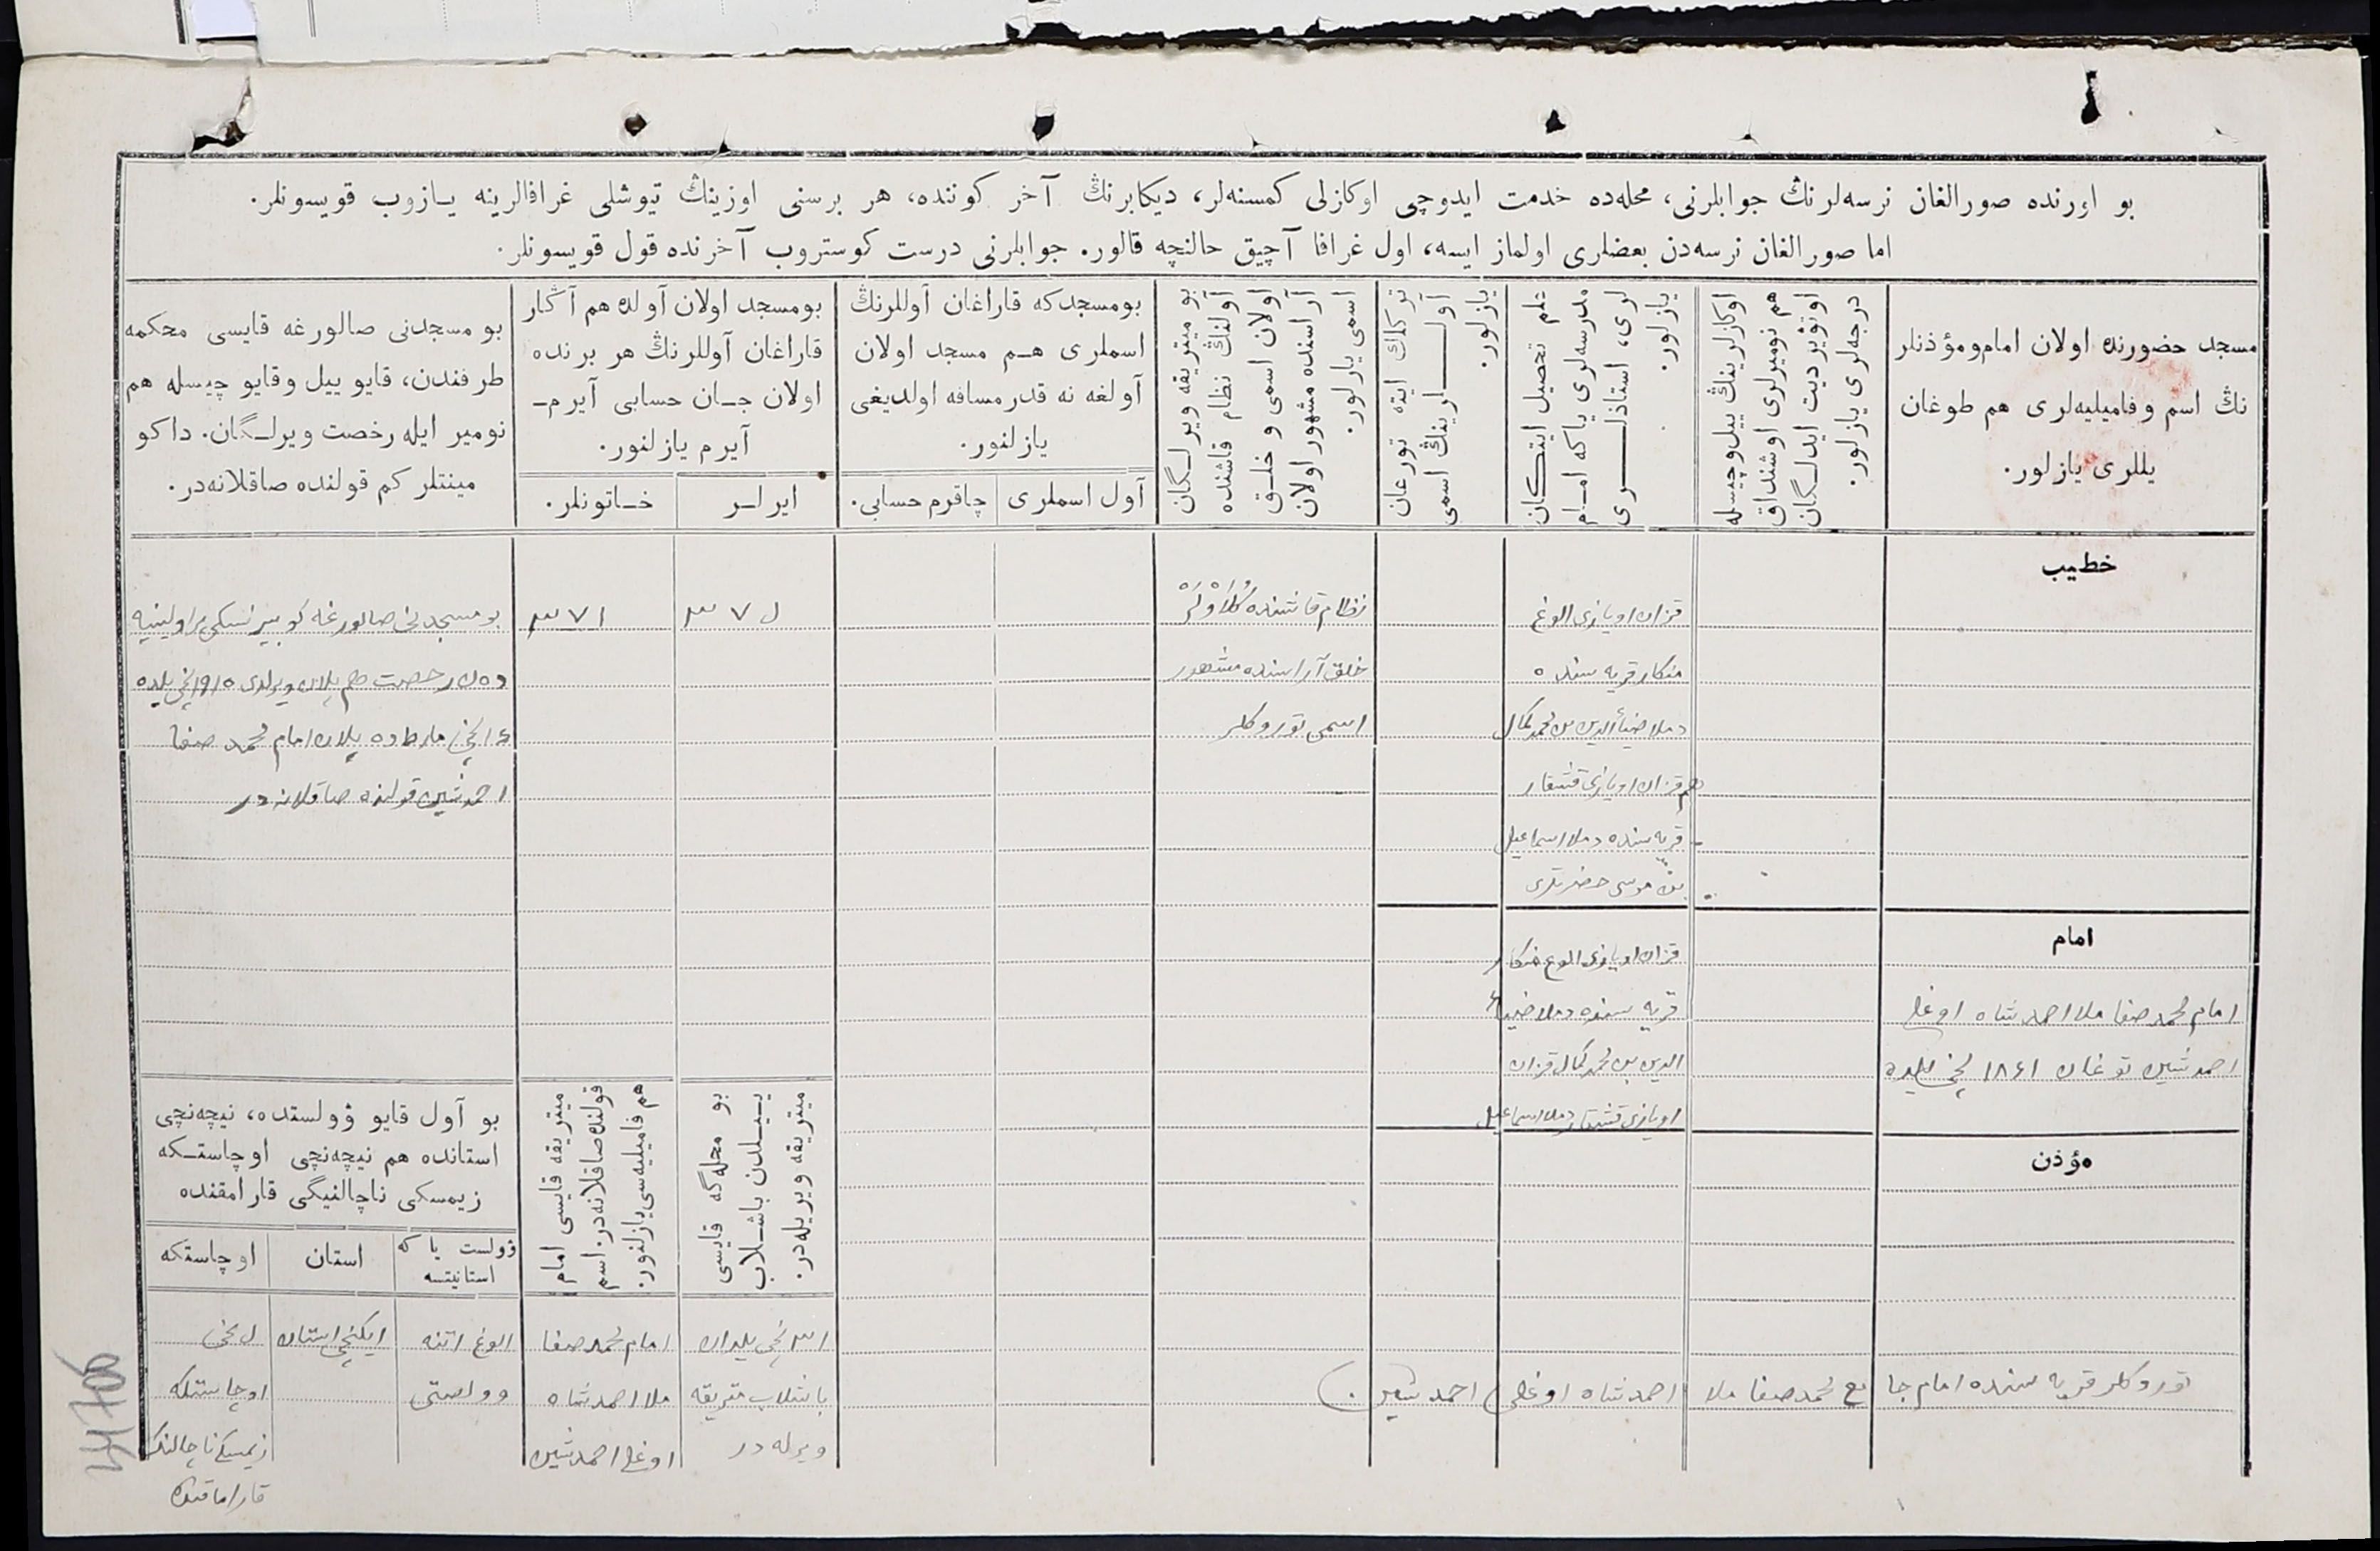 بو اورنده صورالغان نرسه‌لرنڭ جوابلرنی، محله‌ده خدمت ایدوچی اوکازلی کمسنه‌لر، دیکابرنڭ آخر کوننده، هر برسنی اوزینڭ تیوشلی غرافالرینه یـازوب قویسونلر.
اما صورالغان نرسه‌دن بعضلری اولماز ایسه، اول غرافا آچیق حالنچه قالور. جوابلرنی درست کوستروب آخرنده قول قویسونلر.
مسجد حضورنده اولان امام‌ومؤذنلر
نڭ اسم وفامیلیه‌لری هم طوغان
یللری یازلور.
اوکازلرینڭ ییل‌وچیسله
هم نومیرلری اوشنداق
اوتوێردیت ایدلـگان
درجه‌لری یازلور.
علم تحصیل ایتـکان
مدرسه‌لری یاکه امـام
لری، استاذلـــری
یازلور.
ترکلك ایته تورغان
آولـــلرینڭ اسمی
یازلور.
بو میتریقه ویرلـگان
آولنڭ نظام قاشنده
اولان اسمی و خلـق
آراسنده مشهور اولان
اسمی یازلور.
بومسجدکه قاراغان آوللرنڭ
اسملری هـم مسجد اولان
آولغه نه قدر مسافه اولدیغی
یازلنور.
آول اسملری
چاقرم حسابی.
بومسجد اولان آولده هم آڭار
قاراغان آوللرنڭ هر برنده
اولان جـان حسابی آیرم‌ـ
آیرم یازلنور.
ایرلـر
خـاتونلر.
بو مسجدنی صالورغه قایسی محکمه
طرفندن، قایو ییل وقایو چیسله هم
نومیر ایله رخصت ویرلـگان. داکو
مینتلر کم قولنده صاقلانه‌در.
خطیب
قزان اویازی الوغ
منکار قریه سنده
دملا ضیاءالدین بن محمد کمال
هم قزان اویازی قشقار
قریه سنده دملا اسماعیل
بن موسی حضرتلری
نظام قاشنده
خلق آراسنده مشهور
اسمی توروکلر
بو مسجدنی صالورغه
رخصت هم پلان ویرلدی ۱۹۱۵ نچی یلده
۱۴ نچی مارطده پلان امام محمد صفا
احمدشین قولنده صاقلانه در
امام
امام محمد صفا ملا احمد شاه اوغلی
احمدشین توغان ۱۸۶۱ نچی یلده
قزان اویازی الوغ منکار
قریه سنده دملا ضیاء
الدین بن محمد کمال قزان
اویازی قشقار دملا اسماعیل
مؤذن
بو محله‌گه قایسی
یـیـلدن باشـلاب
میتریقه ویریله‌در.
میتریقه قایسی امام
قولنده‌صاقلانه‌در: اسم
هم فامیلیه‌سی‌یازلنور.
بو آول قایو ۋولستده، نیچه‌نچی
استانده هم نیچه‌نچی اوچاستـکه
زیمسکی ناچالنیگی قارامقنده
ۋولست یاکه
استانیتسه
استان
اوچاستکه
نچی یلدان
باشلاب متریقه
ویرله در
امام محمد صفا
ملا احمد شاه
اوغلی احمدشین
الوغ اتنه
وولستی
ایکنچی استان
نچی
اوچاستکه
زیمسکی ناچالنک
قاراماقنده
توروکلر قریه سنده امام جامع محمد صفا ملا احمد شاه اوغلی احمدشین